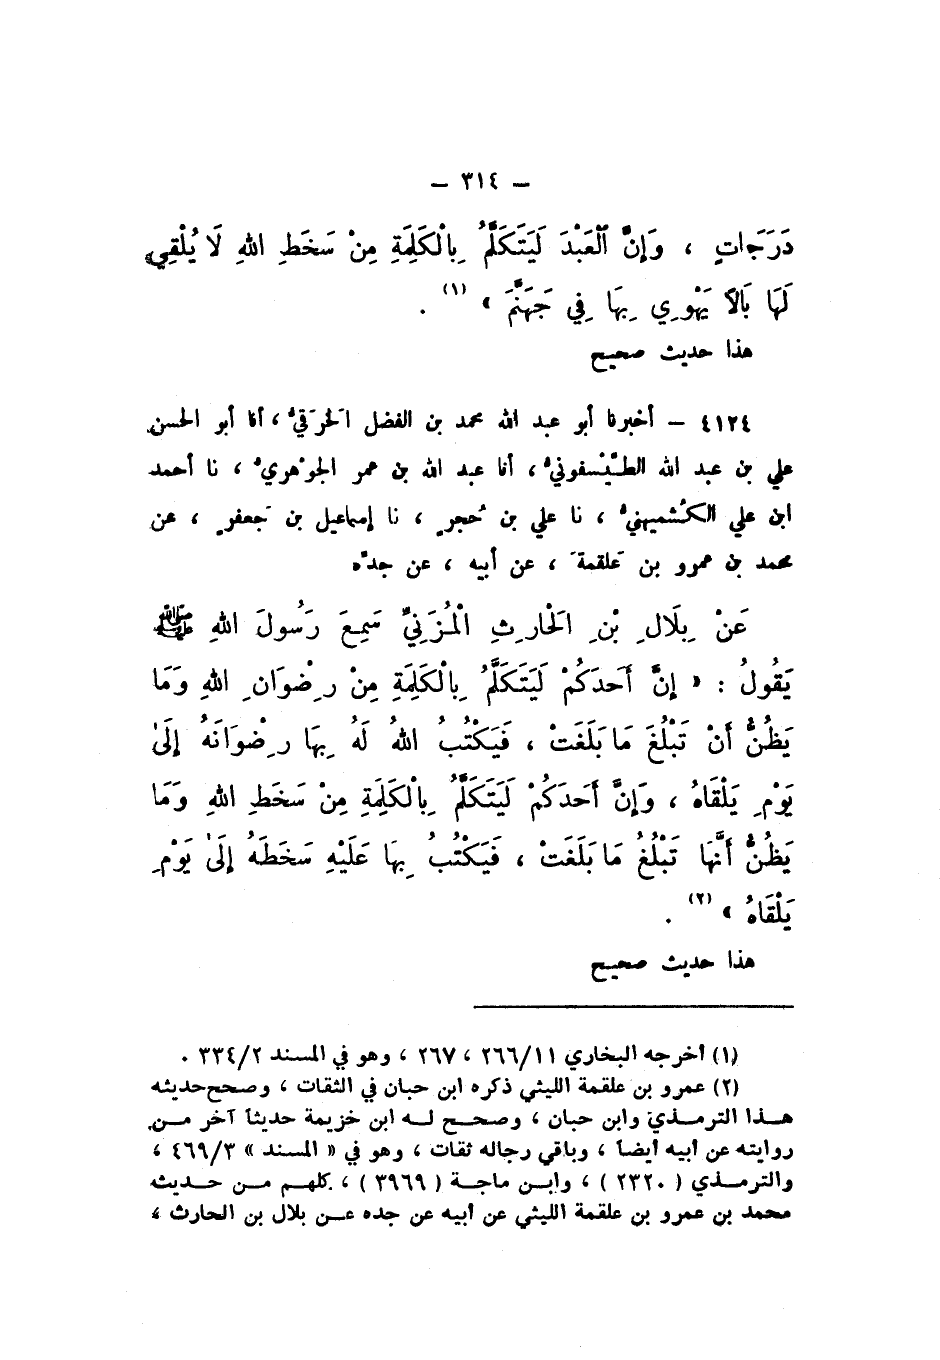 — ٣١٤ —
دَرَجَاتٍ ، وَإِنَّ ٱلْعَبْدَ لَيَتَكَلَّمُ بِالْكَلِمَةِ مِنْ سَخَطِ اللهِ لَا يُلْقِي
لَهَا بَالًا يَهْوِي بِهَا فِي جَهَنَّمَ » (١) .
هذا حديث صحيح
٤١٢٤ – أخبرنا أبو عبد الله محمد بن الفضل الخَرَقيُّ ، أنا أبو الحسن
علي بن عبد الله الطَّيْسفونيُّ ، أنا عبد الله بن عمر الجوْهريُّ ، نا أحمد
ابن علي الكُشميهنيُّ ، نا علي بن حُجرٍ ، نا إسماعيل بن جَعفرٍ ، عن
محمد بن عمرو بن عَلقمةَ ، عن أبيه ، عن جدّه
عَنْ بِلَالِ بْنِ الْحَارِثِ الْمُزَنِيِّ سَمِعَ رَسُولَ اللهِ ﷺ
يَقُولُ : « إِنَّ أَحَدَكُمْ لَيَتَكَلَّمُ بِالْكَلِمَةِ مِنْ رِضْوَانِ اللهِ وَمَا
يَظُنُّ أَنْ تَبْلُغَ مَا بَلَغَتْ ، فَيَكْتُبُ اللهُ لَهُ بِهَا رِضْوَانَهُ إِلَىٰ
يَوْمِ يَلْقَاهُ ، وَإِنَّ أَحَدَكُمْ لَيَتَكَلَّمُ بِالْكَلِمَةِ مِنْ سَخَطِ اللهِ وَمَا
يَظُنُّ أَنَّهَا تَبْلُغُ مَا بَلَغَتْ ، فَيَكْتُبُ بِهَا عَلَيْهِ سَخَطَهُ إِلَىٰ يَوْمِ
يَلْقَاهُ » (٢) .
هذا حديث صحيح
(١) أخرجه البخاري ٢٦٦/١١ ، ٢٦٧ ، وهو في المسند ٣٣٤/٢ .
(٢) عمرو بن علقمة الليثي ذكره ابن حبان في الثقات ، وصحح حديثه
هذا الترمذي وابن حبان ، وصحح له ابن خزيمة حديثاً آخر من
روايته عن أبيه أيضاً ، وباقي رجاله ثقات ، وهو في « المسند » ٤٦٩/٣ ،
والترمذي ( ٢٣٢٠ ) ، وابن ماجة ( ٣٩٦٩ ) ، كلهم من حديث
محمد بن عمرو بن علقمة الليثي عن أبيه عن جده عن بلال بن الحارث ،